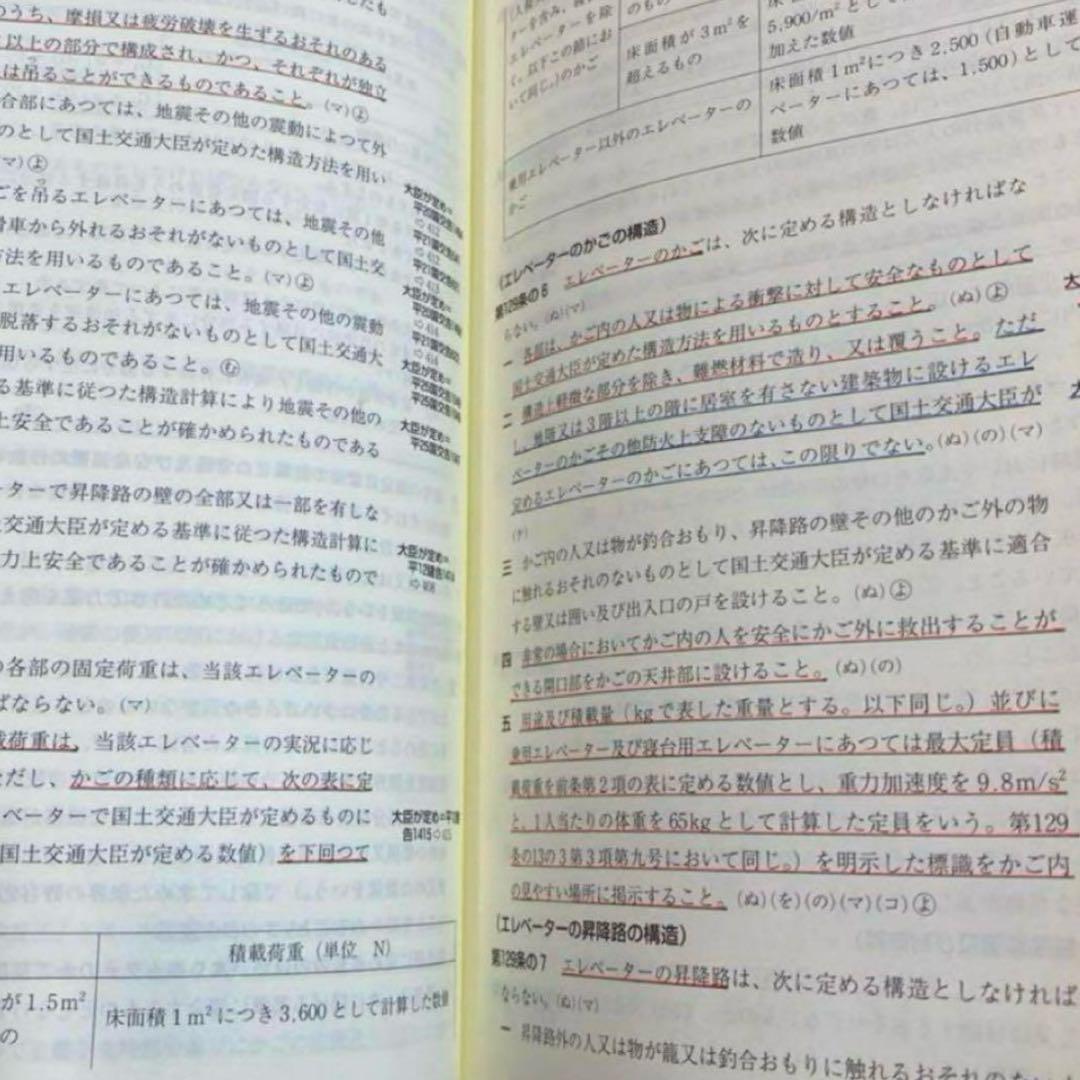 のうち、摩損又は疲労破壊を生ずるおそれのある
以上の部分で構成され、かつ、それぞれが独立
は吊ることができるものであること。(マ)㋵
合部にあつては、地震その他の震動によつて外
のとして国土交通大臣が定めた構造方法を用い
マ)㋵
ごを吊るエレベーターにあつては、地震その他
滑車から外れるおそれがないものとして国土交
方法を用いるものであること。(マ)㋵
エレベーターにあつては、地震その他の震動
脱落するおそれがないものとして国土交通大
用いるものであること。㋰
る基準に従つた構造計算により地震その他の
上安全であることが確かめられたものである
ーターで昇降路の壁の全部又は一部を有しな
交通大臣が定める基準に従つた構造計算に
力上安全であることが確かめられたもので
大臣が定め=
大臣が定め=
大臣が定め=
大臣が定め=
大臣が定め=
の各部の固定荷重は、当該エレベーターの
ばならない。(マ)
載荷重は、当該エレベーターの実況に応じ
ただし、かごの種類に応じて、次の表に定
ベーターで国土交通大臣が定めるものに
国土交通大臣が定める数値)を下回つて
大臣が定め=平12
告1415⇨
積載荷重(単位 N)
が1.5m²
の
床面積1m²につき3,600として計算した数値
エレベーターを除
く。以下この節にお
いて同じ。)のかご
床面積が3m²を
超えるもの
5,900/m²として
加えた数値
乗用エレベーター以外のエレベーターの
かご
床面積1m²につき2,500(自動車運
ベーターにあつては、1,500)として
数値
(エレベーターのかごの構造)
第129条の6 エレベーターのかごは、次に定める構造としなければな
らない。(ぬ)(マ)
一 各部は、かご内の人又は物による衝撃に対して安全なものとして
国土交通大臣が定めた構造方法を用いるものとすること。(ぬ)㋵
二 構造上軽微な部分を除き、難燃材料で造り、又は覆うこと。ただ
し、地階又は3階以上の階に居室を有さない建築物に設けるエレ
ベーターのかごその他防火上支障のないものとして国土交通大臣が
定めるエレベーターのかごにあつては、この限りでない。(ぬ)(の)(マ)
(ケ)
三 かご内の人又は物が釣合おもり、昇降路の壁その他のかご外の物
に触れるおそれのないものとして国土交通大臣が定める基準に適合
する壁又は囲い及び出入口の戸を設けること。(ぬ)㋵
四 非常の場合においてかご内の人を安全にかご外に救出することが
できる開口部をかごの天井部に設けること。(ぬ)(の)
五 用途及び積載量(kgで表した重量とする。以下同じ。)並びに
乗用エレベーター及び寝台用エレベーターにあつては最大定員(積
載荷重を前条第2項の表に定める数値とし、重力加速度を9.8m/s²
と、1人当たりの体重を65kgとして計算した定員をいう。第129
条の13の3第3項第九号において同じ。)を明示した標識をかご内
の見やすい場所に掲示すること。(ぬ)(を)(の)(マ)(コ)㋵
(エレベーターの昇降路の構造)
第129条の7 エレベーターの昇降路は、次に定める構造としなければ
ならない。(ぬ)(マ)
一 昇降路外の人又は物が籠又は釣合おもりに触れるおそれのない